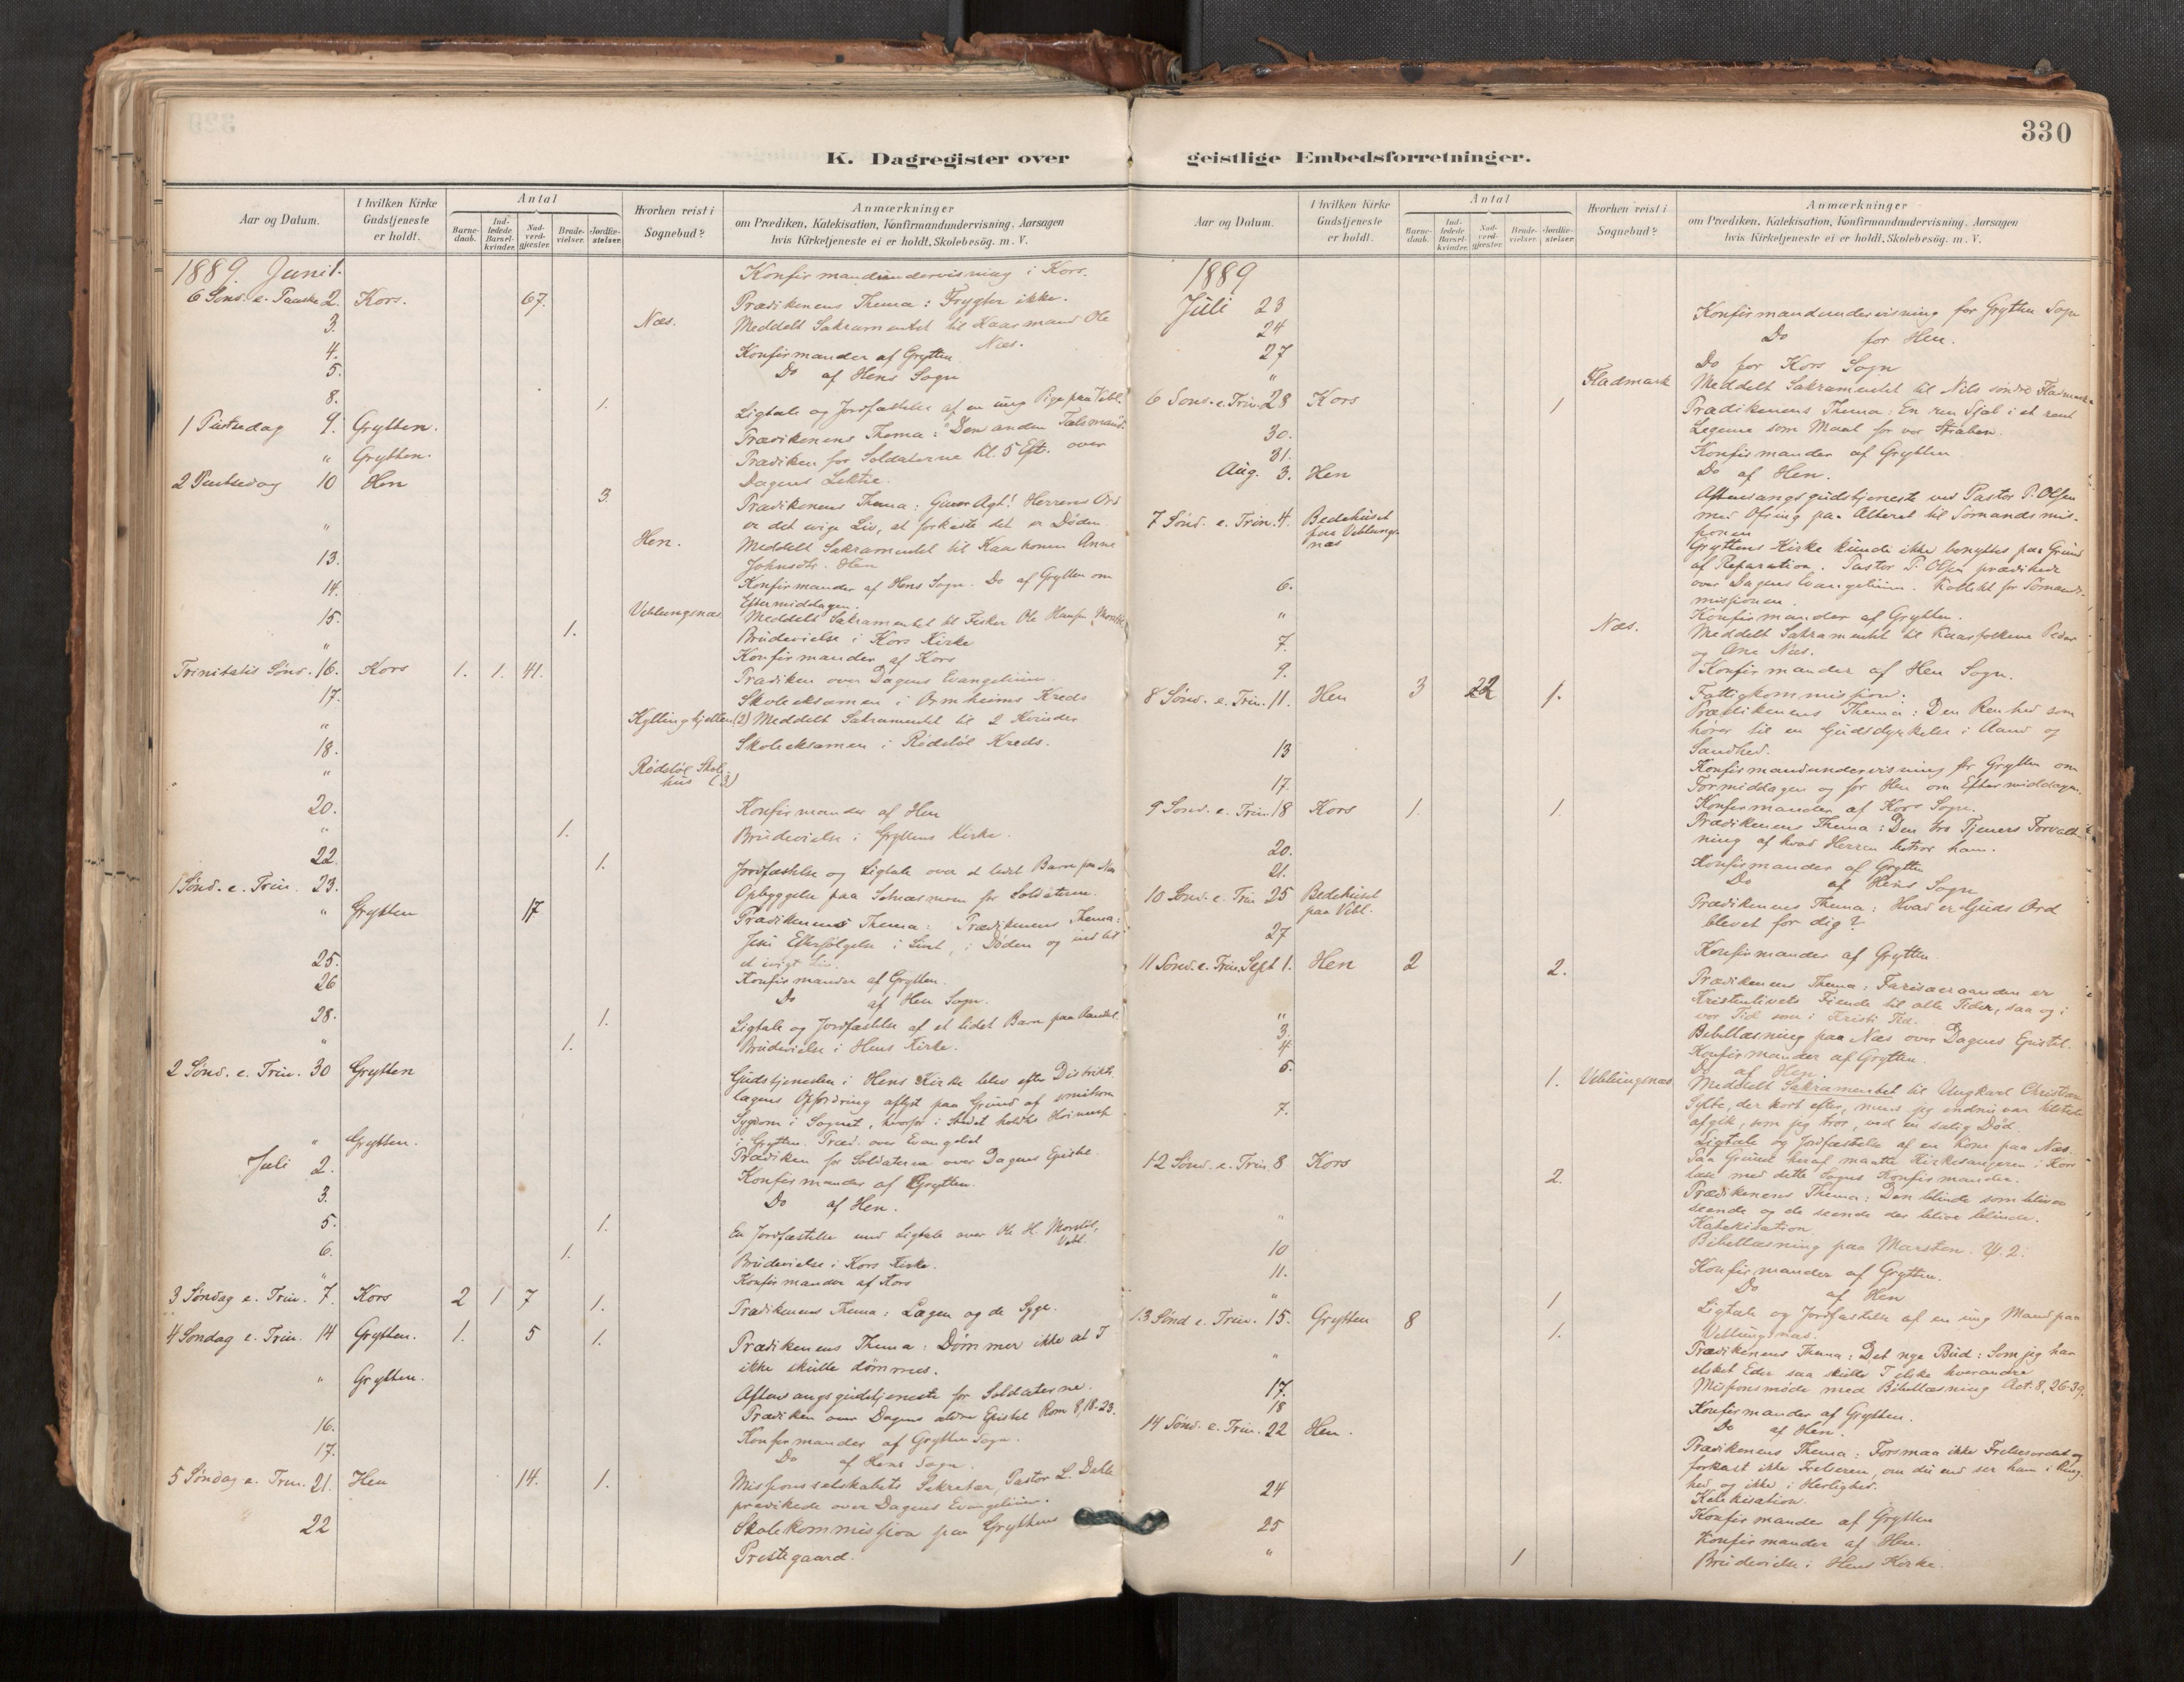 330
K. Dagregister over
Aar og Datum.
I hvilken Kirke Gudstjeneste er holdt.
Antal
Barnedaab.
Indledede Barselkvinder.
Nadverdgjester.
Brudevielser.
Jordfæstelser.
Hvorhen reist i Sognebud?
Anmærkninger
om Prædiken, Katekisation, Konfirmandundervisning, Aarsagen
hvis Kirketjeneste ei er holdt, Skolebesøg. m. V.
1889 Juni 1. Konfirmandundervisning i Kors.
6 Sønd. e. Paaske 2. Kors. 67. Prædikenens Thema: Frygter ikke.
3. Næs. Meddelt Sakramentet til Kaarmand Ole
Næs.
4. Konfirmander af Grytten
5. Do af Hens Sogn
8. 1. Ligtale og Jordfæstelse af en ung Pige paa Vebl.
1 Pintsedag 9. Grytten. Prædikenens Thema: Den anden Talsmand.
" Grytten. Prædiken for Soldaterne Kl. 5 Eft. over
Dagens Lektie.
2 Pintsedag 10 Hen 3. Prædikenens Thema: Giver Agt! Herrens Ord
er det evige Liv, at forkaste det er Døden.
" Hen. Meddelt Sakramentet til Kaarkonen Anne
Johnsdtr. Hen
13. Konfirmander af Hens Sogn. Do af Grytten om
Eftermiddagen.
14. Veblungsnæs Meddelt Sakramentet til Fisker Ole Hansen
15. 1. Brudevielse i Kors Kirke
" Konfirmander af Kors
Trinitatis Sønd. 16. Kors 1. 1. 41. Prædiken over Dagens Evangelium.
17. Skoleeksamen i Ormheims Kreds
" Kyllingkjellen (2) Meddelt Sakramentet til 2 Kvinder
18. Skoleeksamen i Rødstøl Kreds.
" Rødstøl Skolehus (3)
20. Konfirmander af Hen
" 1. Brudevielse i Gryttens Kirke.
22. 1. Jordfæstelse og Ligtale over et lidet Barn paa Næs
1 Sønd. e. Trin. 23. Opbyggelse paa Setnesmoen for Soldaterne.
" Grytten 17 Prædikenens Thema: Prædikenens Thema:
Jesu Efterfølgelse i Livet, i Døden og ind til
et evigt Liv.
25. Konfirmander af Grytten.
26 Do af Hen Sogn.
28. 1. Ligtale og Jordfæstelse af et lidet Barn paa
" 1. Brudevielse i Hens Kirke.
2 Sønd. e. Trin. 30 Grytten Gudstjenesten i Hens Kirke blev efter Distrikts-
lægens Opfordring aflyst paa Grund af smitsom
Sygdom i Sognet, hvorfor i Stedet holdtes Høimesse
i Grytten. Præd. over Evangeliet
" Grytten. Prædiken for Soldaterne over Dagens Epistel.
Juli 2. Konfirmander af Grytten.
3. Do af Hen.
5. 1. En Jordfæstelse med Ligtale over Ole H. Morstøl,
Vebl.
6. 1. Brudevielse i Kors Kirke.
" Konfirmander af Kors
3 Søndag e. Trin. 7. Kors 2 1 7 1. Prædikenens Thema: Lægen og de Syge.
4 Søndag e. Trin. 14 Grytten. 1. 5 1. Prædikenens Thema: Dømmer ikke at I
ikke skulle dømmes.
" Grytten. Aftensangsgudstjeneste for Soldaterne.
Prædiken over Dagens ældre Epistel Rom 8,18-23.
16. Konfirmander af Grytten Sogn.
17. Do af Hens Sogn.
5 Søndag e. Trin. 21. Hen 14. 1. Missionsselskabets Sekretær, Pastor L. Dahle
prædikede over Dagens Evangelium.
22 Skolekommission paa Gryttens
Prestegaard.
geistlige Embedsforretninger.
Aar og Datum.
I hvilken Kirke Gudstjeneste er holdt.
Antal
Barnedaab.
Indledede Barselkvinder.
Nadverdgjester.
Brudevielser.
Jordfæstelser.
Hvorhen reist i Sognebud?
Anmærkninger
om Prædiken, Katekisation, Konfirmandundervisning, Aarsagen
hvis Kirketjeneste ei er holdt, Skolebesøg. m. V.
1889
Juli 23 Konfirmandundervisning for Grytten Sogn
24 Do for Hen.
27 Do for Kors Sogn
" Fladmark Meddelt Sakramentet til Nils søndre Fladmark
6 Sønd. e. Trin. 28 Kors 1 Prædikenens Thema: En ren Sjæl i et rent
Legeme som Maal for vor Stræben.
30. Konfirmander af Grytten
31. Do af Hen.
Aug. 3. Hen Aftensangsgudstjeneste ved Pastor P. Olsen
med Ofring paa Alteret til Sømandsmis-
sionen
7 Sønd. e. Trin. 4. Bedehuset paa Veblungsnæs Gryttens Kirke kunde ikke benyttes paa Grund
af Reparation. Pastor P. Olsen prædikede
over Dagens Evangelium. Kollekt for Sømands-
missionen.
6. Konfirmander af Grytten.
" Næs. Meddelt Sakramentet til Kaarfolkene Peder
og Ane Næs.
7. Konfirmander af Hen Sogn.
9. Fattigkommission.
8 Sønd. e. Trin. 11. Hen 3 22 1. Prædikenens Thema: Den Renhed som
hører til en Gudsdyrkelse i Aand og
Sandhed.
13 Konfirmandundervisning for Grytten om
Formiddagen og for Hen om Eftermiddagen.
17. Konfirmander af Kors Sogn.
9 Sønd. e. Trin 18 Kors 1. 1. Prædikenens Thema: Den tro Tjeners Forvalt-
ning af hvad Herren betror ham.
20. Konfirmander af Grytten
21. Do af Hens Sogn
10 Sønd. e. Trin 25 Bedehuset paa Vebl. Prædikenens Thema: Hvad er Guds Ord
blevet for dig?
27 Konfirmander af Grytten.
11 Sønd. e. Trin. Sept 1. Hen 2 2. Prædikenens Thema: Farisæeraanden er
Kristenlivets Fiende til alle Tider, saa og i
vor Tid som i Kristi Tid.
" Bibellæsning paa Næs over Dagens Epistel.
3. Konfirmander af Grytten.
4 Do af Hen.
5. 1. Veblungsnæs Meddelt Sakramentet til Ungkarl Christian
Sylte, der kort efter, mens jeg endnu var tilstede
afgik, som jeg tror, ved en salig Død.
7. Ligtale og Jordfæstelse af en Kone paa Næs.
Paa Grund heraf maatte Kirkesangeren i Kors
læse med dette Sogns Konfirmander.
12 Sønd. e. Trin. 8 Kors 2. Prædikenens Thema: Den blinde som bliver
seende og de seende der blive blinde.
Katekisation
" Bibellæsning paa Marsten. Ψ. 2.
10 Konfirmander af Grytten.
11. Do af Hen
" 1 Ligtale og Jordfæstelse af en ung Mand paa
Veblungsnæs.
13 Sønd e. Trin. 15. Grytten 8 1. Prædikenens Thema: Det nye Bud: Som jeg har
elsket Eder saa skulle I elske hverandre
" Missionsmøde med Bibellæsning Act. 8, 26-39.
17. Konfirmander af Grytten.
18 Do af Hen.
14 Sønd. e. Trin. 22 Hen. Prædikenens Thema: Forsmaa ikke Frelsesordet og
forkast ikke Frelseren, om du end ser ham i Ring-
hed og ikke i Herlighed.
Katekisation.
24 Konfirmander af Grytten
25 Konfirmander af Hen.
" 1 Brudevielse i Hens Kirke.